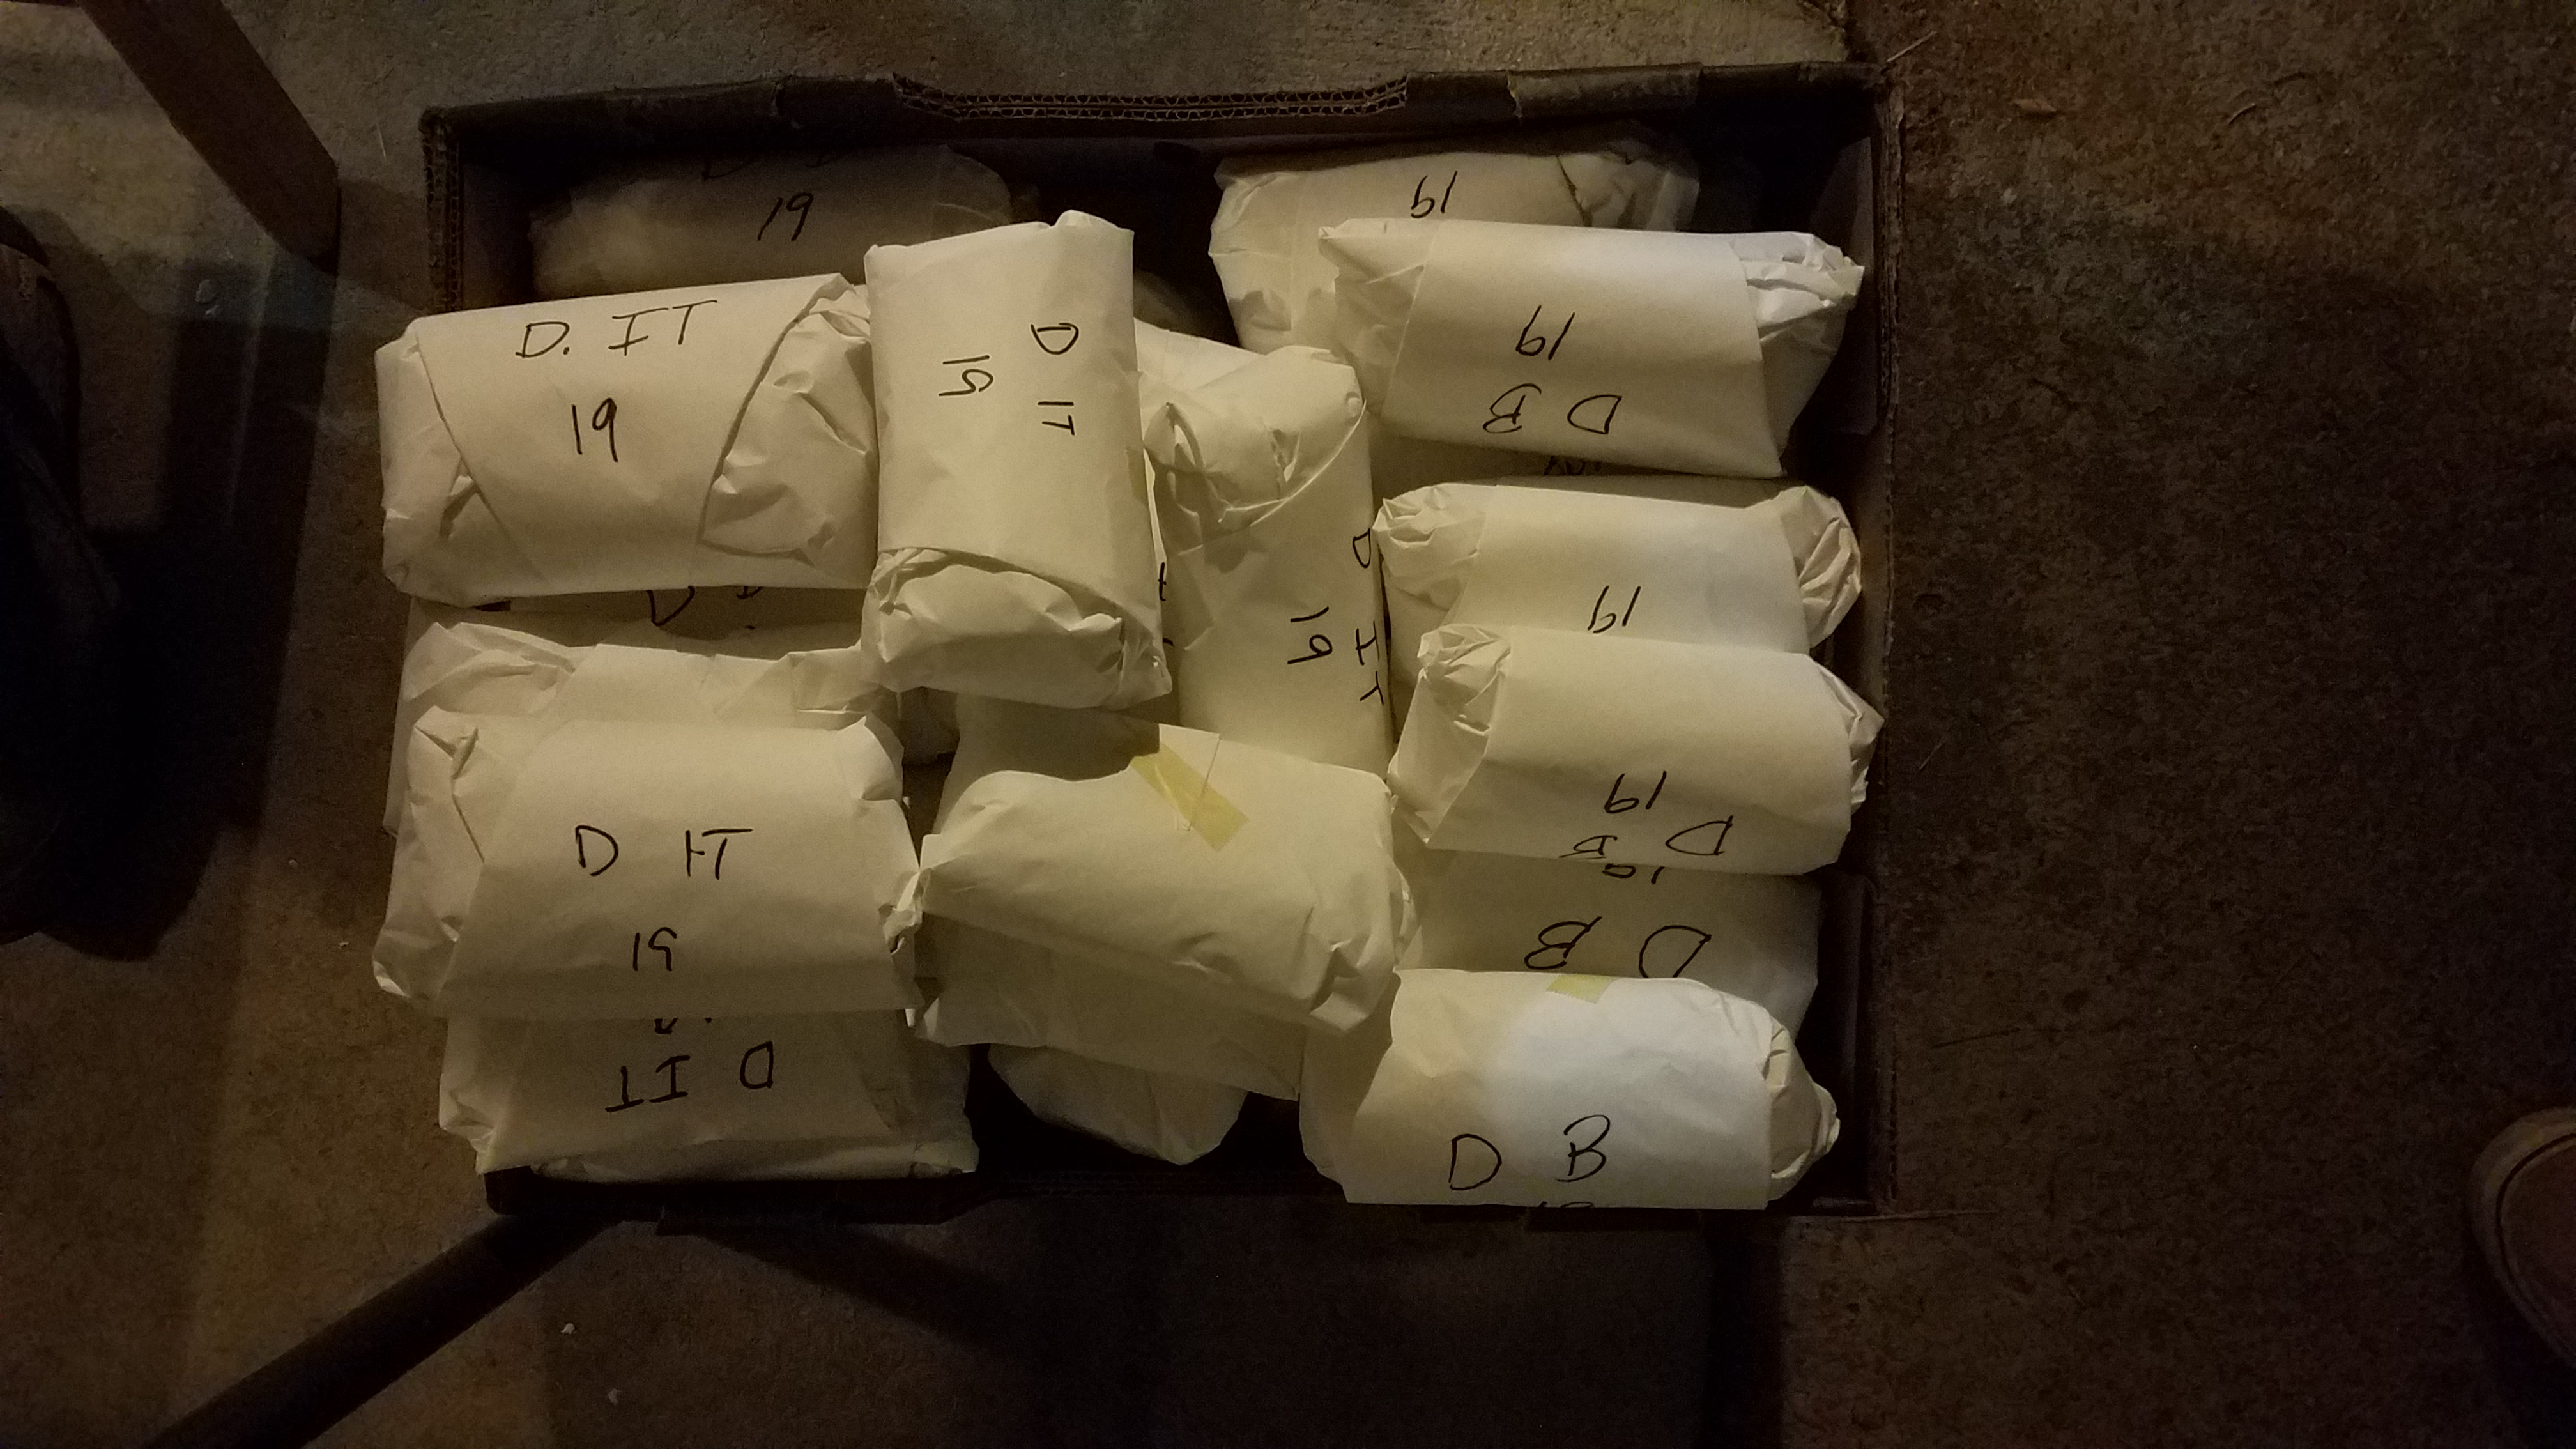 D IT
D IT
19
D. IT
19
19
19
D IT
19
D IT
D B
D B
19
D B
19
19
D B
19
19